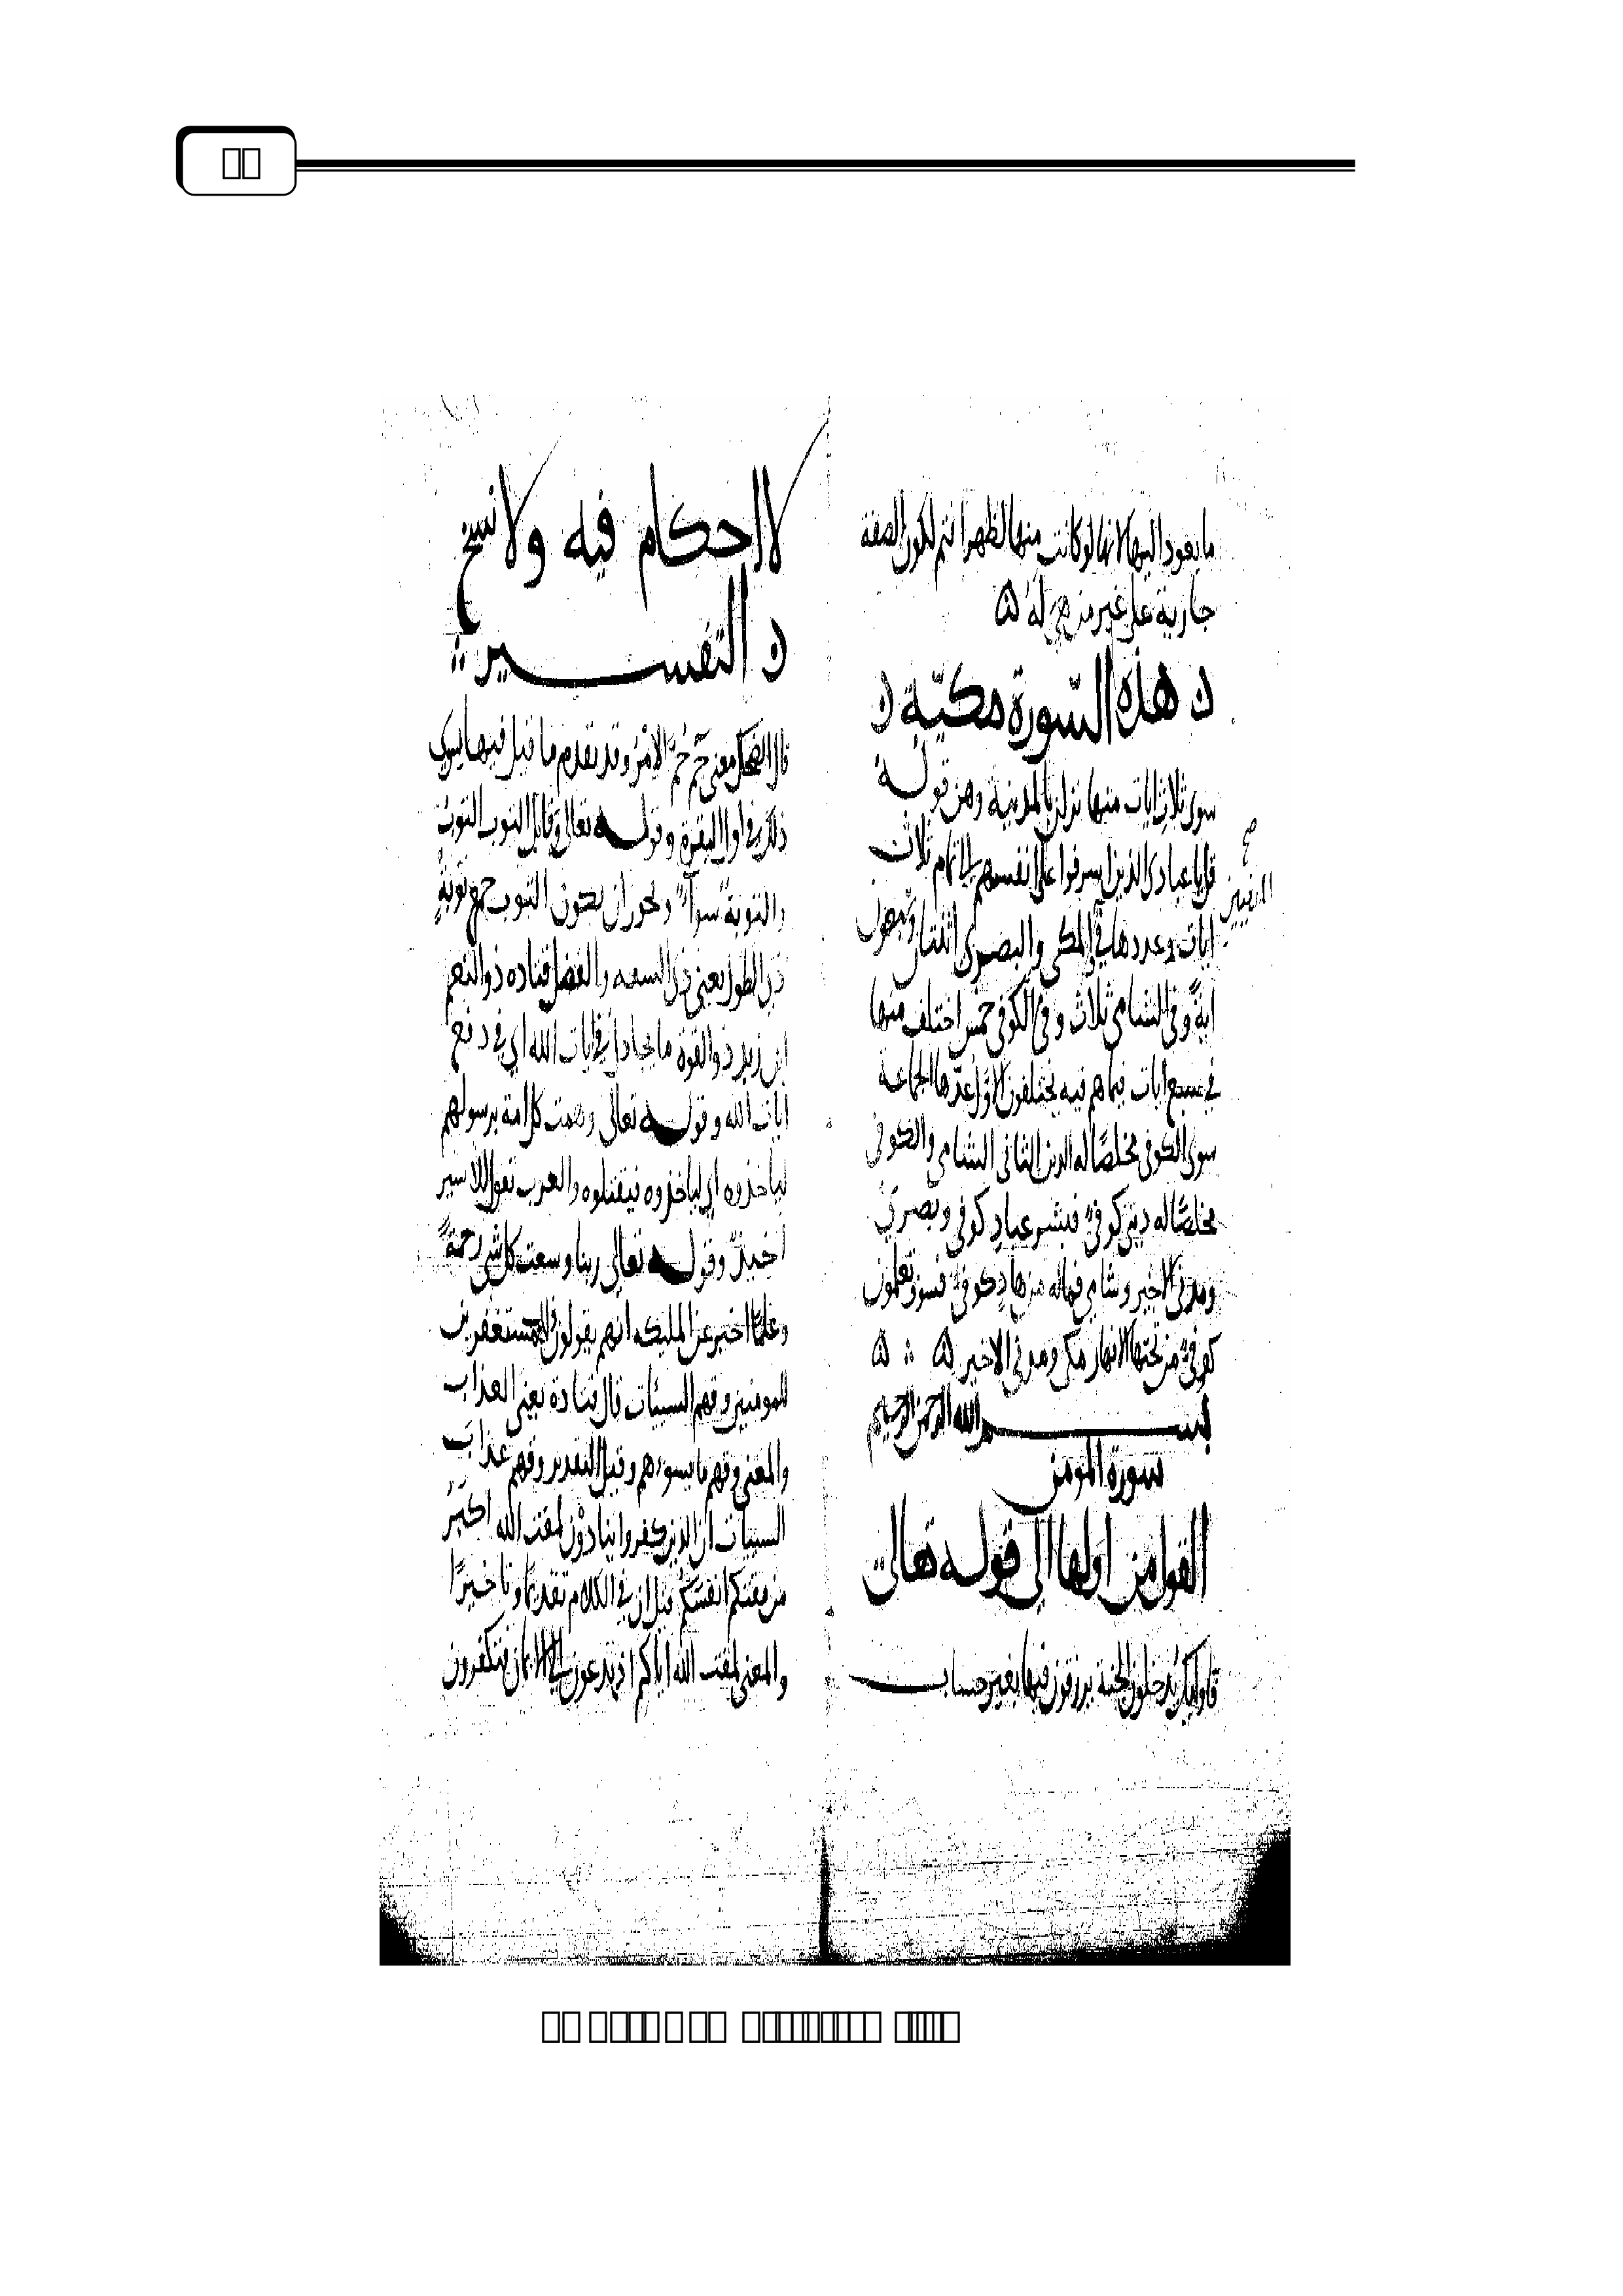 ما يعود اليها لانها لو كانت منها لظهرا نتم لكون الصفة
جارية على غير من هي له
هذه السورة مكية
سوى ثلاث ايات منها نزلن بالمدينة وهن قوله
قل يا عبادى الذين اسرفوا على انفسهم الى تمام ثلاث
ايات وعددها في المكى والبصرى اثنتان وسبعون
اية وفى الشامي ثلاث وفى الكوفى خمس اختلف منها
في سبع ايات فيما هم فيه يختلفون الاول عدها الجماعة
سوى الكوفى مخلصا له الدين الثانى الشامى والكوفى
مخلصا له دينى كوفى فبشر عباد كوفى وبصرى
ومدنى الاخير وشامى فماله من هاد كوفى فسوف تعلمون
كوفى من تحتها الانهار مكى ومدنى الاخير
بسم الله الرحمن الرحيم
سورة المومن
القول من اولها الى قوله تعالى
فاوليك يدخلون الجنة يرزقون فيها بغير حساب
لا احكام فيه ولا نسخ
التفسير
قال الضحاك معنى حم حم الامر وقد تقدم ما قيل فيها سوى
ذلك في اول البقرة وقوله تعالى وقابل التوب التوب
والتوبة سوآء ويجوز ان يكون التوب جمع توبة
ذى الطول يعنى ذى السعه والفضل قتاده ذو النعم
ابن زيد ذو القوة ما يجادل في ايات الله اي في دفع
ايات الله وقوله تعالى وهمت كل امة برسولهم
لياخذوه اي لياخذوه فيقتلوه والعرب تقول للاسير
اخيذ وقوله تعالى ربنا وسعت كل شى رحمة
وعلما اخبر عن المليكه انهم يقولون للمستغفرين
للمومنين وقهم السيئات قال قتادة يعنى العذاب
والمعنى وقهم ما يسوءهم وقيل التقدير وقهم عذاب
السيئات ان الذين كفروا ينادون لمقت الله اكبر
من مقتكم انفسكم قيل ان في الكلام تقديما وتاخيرا
والمعنى لمقت الله اياكم اذ تدعون الى الايمان فتكفرون